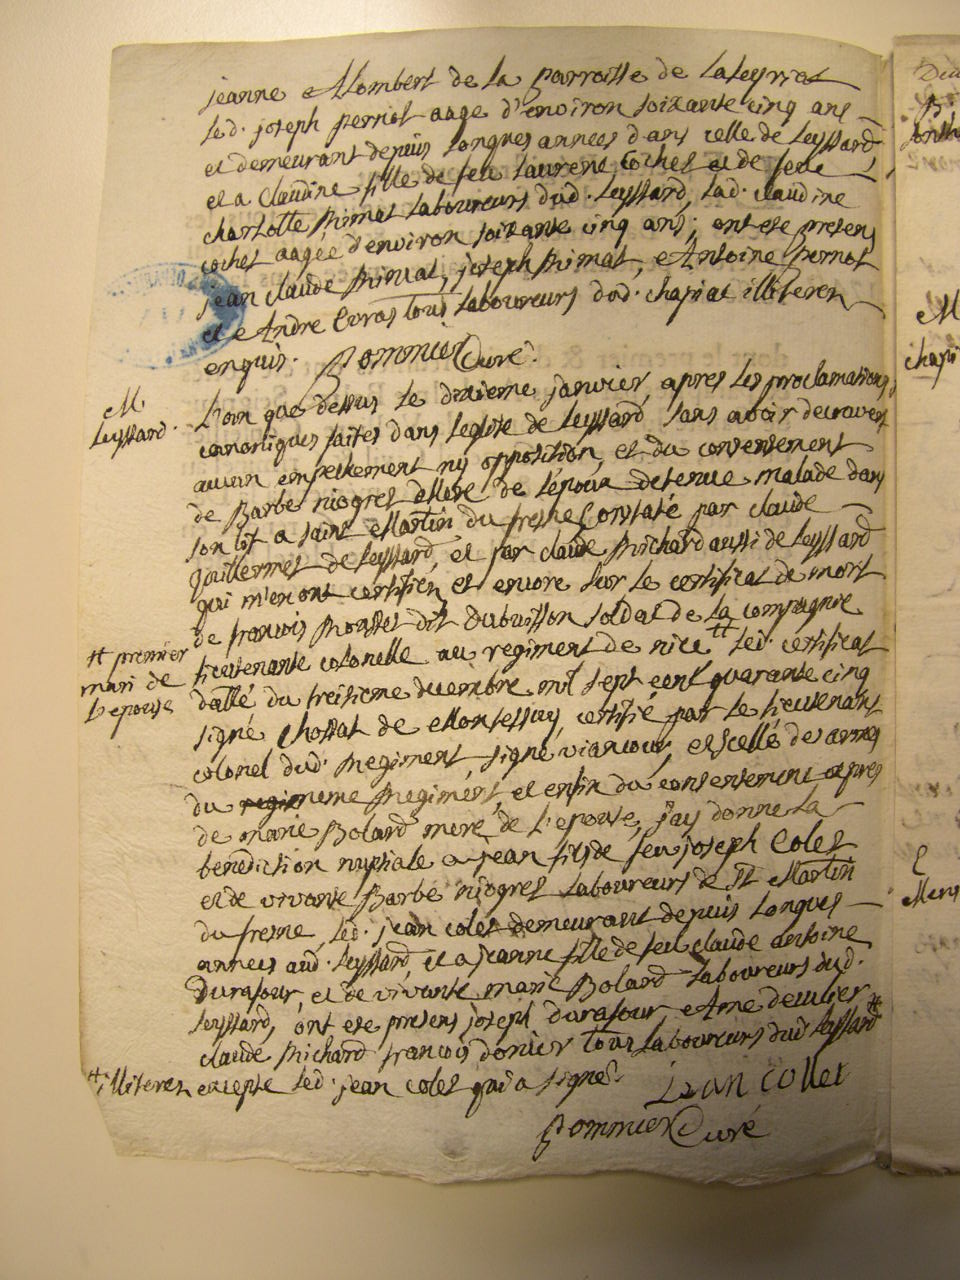 jeanne Alombert de la parroisse de Laleyriat
led. joseph pernot aagé d'environ soixante cinq ans
et demeurant depuis longues années dans celle de Leyssard
et a claudine fille de feu Laurent Cochet et de feue
charlotte Nimat Laboureurs dud. Leyssard, lad. claudine
cochet aagée d'environ soixante cinq ans; ont ete presens
jean claude Nimat, joseph Nimat, Antoine pernot
et Andre Evras tous Laboureurs dud. chapiat illiteren
enquis. Pommier Curé.
M.
Leyssard.
L'an que dessus le dixieme janvier, apres les proclamations
canoniques faites dans leglise de Leyssard, sans avoir decouvert
aucun empeschement ny opposition, et du consentement
de Barbe niogret Mere de l'epoux detenue malade dans
son lit a saint Martin du fresne Constaté par claude
Guillermet de Leyssard, et par claude Michard aussi de Leyssard
qui m'en ont certifié, et encore sur le certificat de mort
de francois dit dubuisson soldat de la compagnie
lieutenante colonelle au regiment de nice led. certificat
premier
mari de
L'epouse
datté du treisieme decembre mil sept cent quarante cinq
signé Chossat de Montessuy, certifié par le lieutenant
colonel dud. Regiment, signé et scellé des armes
du meme Regiment, et enfin du consentement expres
de marie Bolard mere de l'epouse, j'ay donné la
benediction nuptiale a jean fils de feu joseph Colet
et de vivante Barbe niogret Laboureurs de St Martin
du fresne, led. jean colet demeurant depuis Longues
annees aud. Leyssard, et a jeanne fille de feu claude antoine
Durafour, et de vivante marie Bolard Laboureurs dud.
Leyssard, ont ete presens joseph durafour, Ame
claude Michard francois donier tous Laboureurs dud. Leyssard
illiteren excepte led. jean colet qui a signé.
jean collet
Pommier Curé